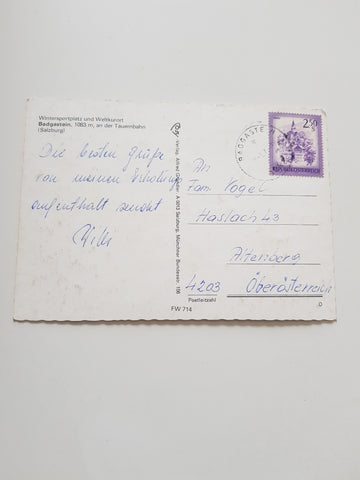 Wintersportplatz und Weltkurort
Badgastein, 1083 m, an der Tauernbahn
(Salzburg)
Die besten Grüße
von meinem Erholungs
aufenthalt sendet
Willi
Verlag: Alfred A-5013 Salzburg, Münchner Bundesstr. 156
BADGASTEIN
2.50
REPUBLIK ÖSTERREICH
An
Fam. Vogel
Haslach 43
Altenberg
4203 Oberösterreich
Postleitzahl
FW 714